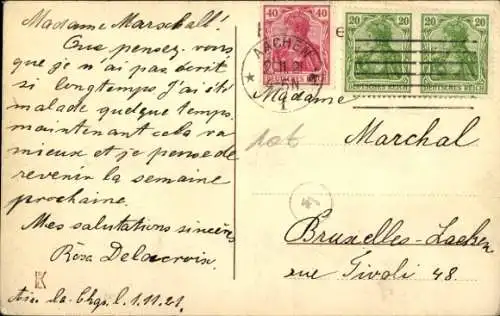 Madame Marschall!
Que pensez vous
que je n'ai pas écrit
si longtemps J'ai été
malade quelque temps.
maintenant cela va
mieux et je pense de
revenir la semaine
prochaine.
Mes salutations sincères
Rosa Delacroix.
la Chap. l. 1.11.21.
K
40 40
DEUTSCHES REICH
20 20
DEUTSCHES REICH
20 20
DEUTSCHES REICH
AACHEN
11 21
1
Madame
Marchal
Bruxelles-Laeken
rue Tivoli 48.